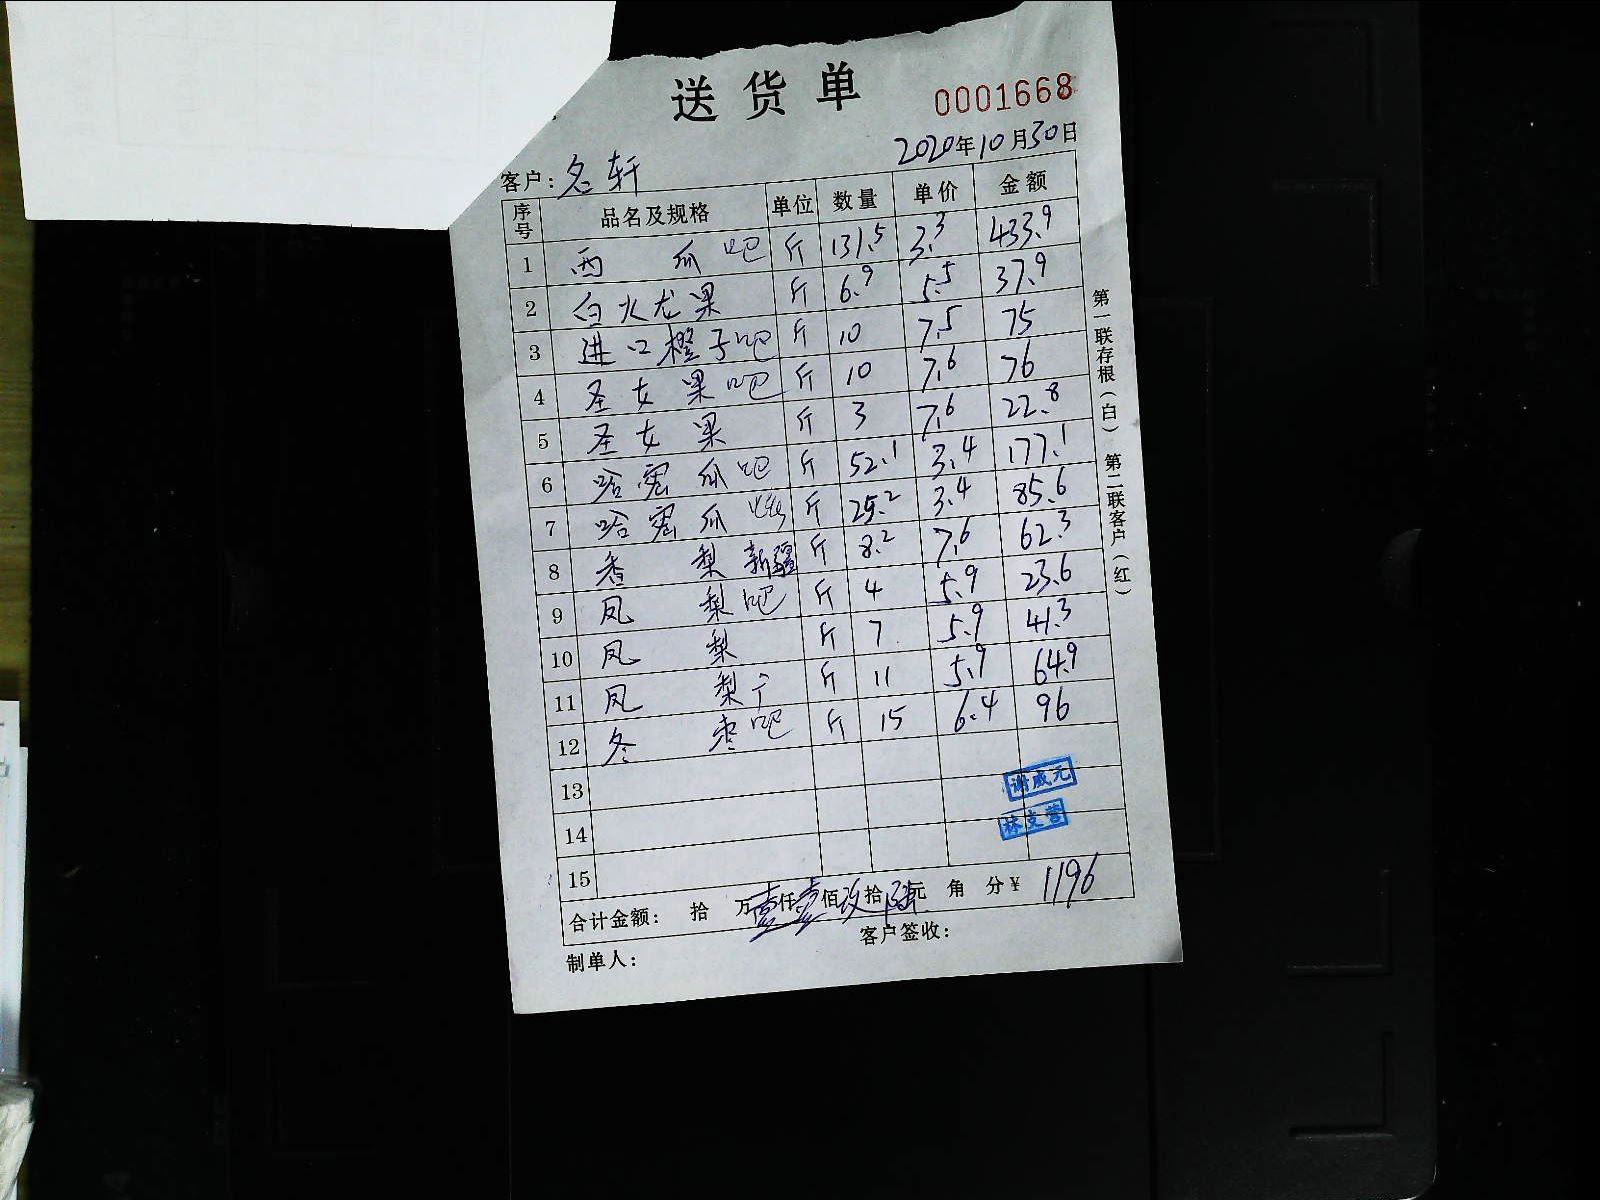 送货单 0001668
2020年10月30日
客户：名轩
序号 品名及规格 单位 数量 单价 金额
1 西瓜吧 斤 131.5 3.3 433.9
2 白火龙果 斤 6.9 5.5 37.9
3 进口橙子吧 斤 10 7.5 75
4 圣女果吧 斤 10 7.6 76
5 圣女果 斤 3 7.6 22.8
6 哈密瓜吧 斤 52.1 3.4 177.1
7 哈密瓜 斤 25.2 3.4 85.6
8 香梨新疆 斤 8.2 7.6 62.3
9 凤梨吧 斤 4 5.9 23.6
10 凤梨 斤 7 5.9 41.3
11 凤梨 斤 11 5.9 64.9
12 冬枣吧 斤 15 6.4 96
13
14
15
谢威元
林支营
合计金额：拾 万壹仟壹佰玖拾陆元 角 分¥ 1196
制单人： 客户签收：
第一联存根（白） 第二联客户（红）